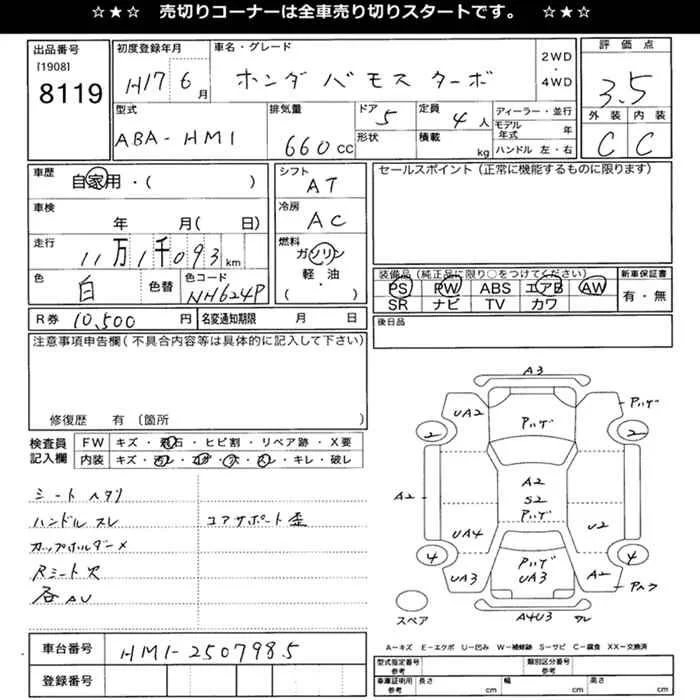 ☆★☆ 売切りコーナーは全車売り切りスタートです。 ☆★☆
出品番号
[1908]
8119
初度登録年月
H17 6月
車名・グレード
ホンダ バモス ターボ
2WD
・
4WD
評価点
3.5
外装 内装
C C
型式
ABA-HM1
排気量
660cc
ドア 5
形状
定員 4人
積載 kg
ディーラー・並行
モデル年式 年
ハンドル 左・右
車歴
自家用・( )
車検
年 月( 日)
走行
11万1千093km
色
白
色替
色コード
NH624P
シフト
AT
冷房
AC
燃料
ガソリン
軽・油
( )
セールスポイント (正常に機能するものに限ります)
装備品 (純正品に限り○をつけてください)
PS PW ABS エアB AW
SR ナビ TV カワ
新車保証書
有・無
R券 10,500円
名変通知期限 月 日
後日品
注意事項申告欄(不具合内容等は具体的に記入して下さい)
修復歴 有〔箇所 〕
検査員
記入欄
FW キズ・飛石・ヒビ割・リペア跡・X要
内装 キズ・汚レ・コゲ・穴・スレ・キレ・破レ
シートヘタリ
ハンドルスレ
コアサポート歪
カップホルダー×
Rシート穴
各AU
A3
UA2
Pハゲ
Pハゲ
2
2
A2
A2
S2
Pハゲ
UA4
U2
4
4
UA3
Pハゲ
UA3
A2
スペア
A4U3
ワレ
車台番号
HM1-2507985
登録番号
A-キズ E-エクボ U-凹み W-補修跡 S-サビ C-腐食 XX-交換済
型式指定番号
参考
類別区分番号
参考
車庫証明用
参考
長さ cm
幅 cm
高さ cm